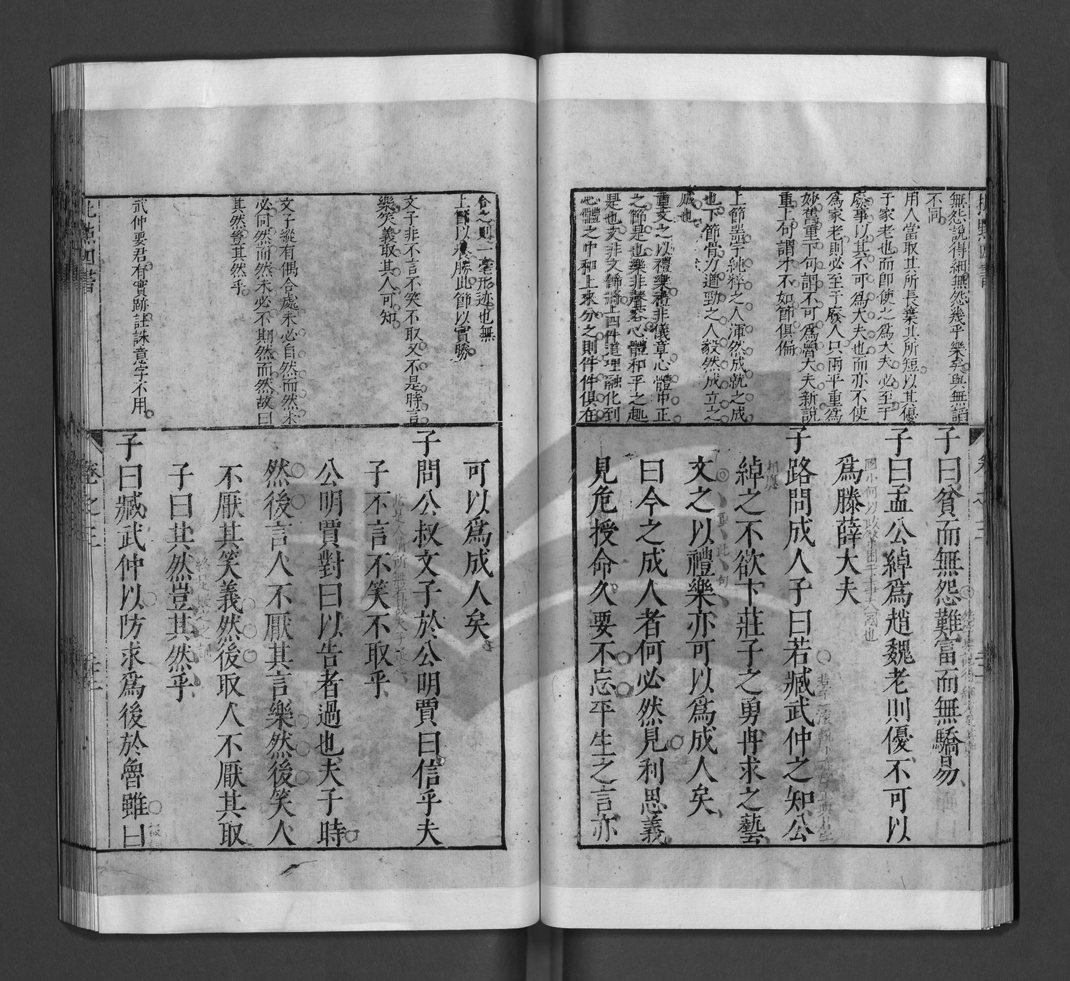 無怨說得細無怨幾乎樂矣與無諂
不同
用人當取其所長棄其所短以其優
于家老也而即使之為大夫必至于
廢事以其不可為大夫也而亦不使
為家老則必至于廢人口兩平重為
妙舊重下句謂不可為曹大夫新說
重上句謂才不如節俱偏
上節當于純粹之人渾然成就之成
也下節骨力遒勁之人毅然成立之
成也
重文之以禮樂禮非儀章心體中正
之節是也樂非聲容心體和平之趣
是也文非文飾將上四件道理融化到
心體之中和上來分之則件件俱在
子曰貧而無怨難富而無驕易
子曰孟公綽為趙魏老則優不可以
為滕薛大夫
子路問成人子曰若臧武仲之知公
綽之不欲卞莊子之勇冉求之藝
文之以禮樂亦可以為成人矣
曰今之成人者何必然見利思義
見危授命久要不忘平生之言亦
合之則一毫形迹也無
上節以養勝此節以實勝
文子非不言不笑不取又不是時言
樂笑義取其人可知
文子縱有偶合處未必自然而然未
必何然而然未必不期然而然故曰
其然豈其然乎
武仲要君有實跡註誅意字不用
可以為成人矣
子問公叔文子於公明賈曰信乎夫
子不言不笑不取乎
公明賈對曰以告者過也夫子時
然後言人不厭其言樂然後笑人
不厭其笑義然後取人不厭其取
子曰其然豈其然乎
子曰臧武仲以防求為後於魯雖曰